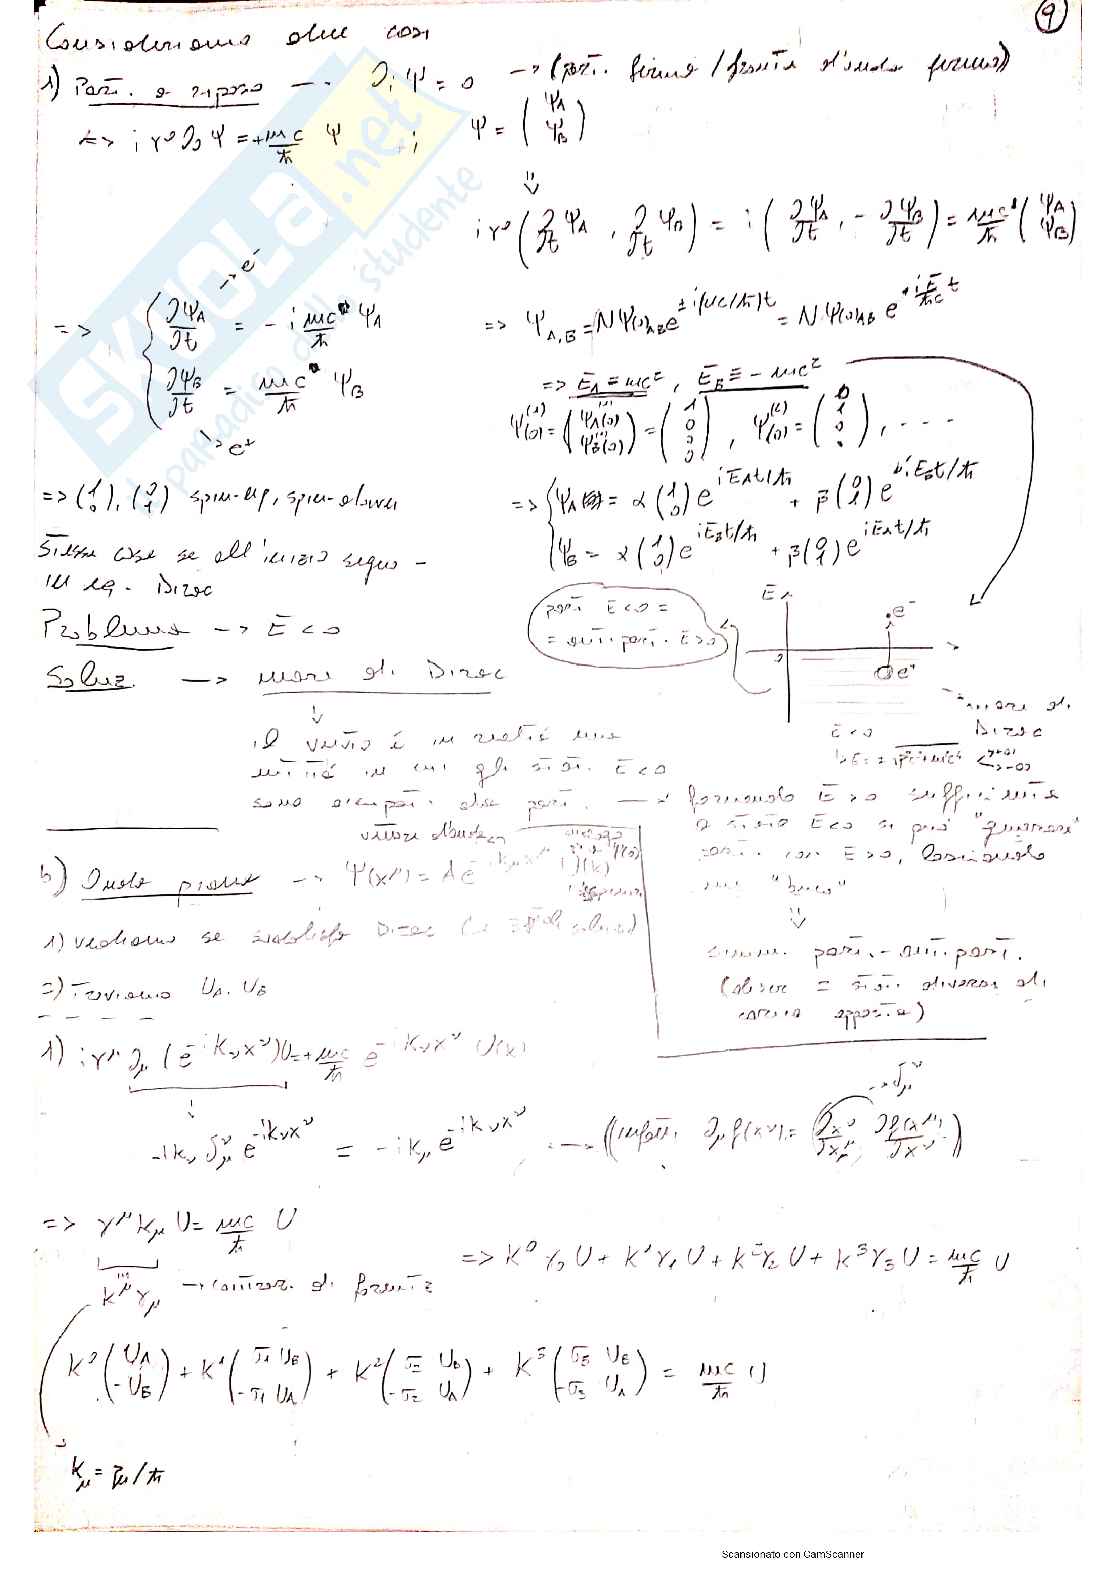 9
Consideriamo due casi
1) Part. a riposo --- ∂ᵢΨ = 0 → (part. ferma / fronte d'onda fermo)
<=> iγ⁰∂₀Ψ = + mc/ħ Ψ ; Ψ = (Ψ_A Ψ_B)
iγ⁰(∂/∂t Ψ_A, ∂/∂t Ψ_B) = i(∂Ψ_A/∂t, -∂Ψ_B/∂t) = mc/ħ (Ψ_A Ψ_B)
→ e⁻
=> { ∂Ψ_A/∂t = -i mc/ħ Ψ_A => Ψ_A,B = NΨ(0)_AB e^{± i(mc/ħ)t} = NΨ(0)_AB e^{+i E/ħc t}
∂Ψ_B/∂t = mc/ħ Ψ_B => E_A = mc², E_B ≡ -mc²
→ e⁺
Ψ(0)⁽¹⁾ = (Ψ_A⁽¹⁾(0) Ψ_B⁽¹⁾(0)) = (1 0 0 0), Ψ(0)⁽²⁾ = (0 1 0 0), ---
=> (1 0), (0 1) spin-up, spin-down
=> { Ψ_A = α(1 0)e^{iE_At/ħ} + β(0 1)e^{iE_Bt/ħ}
Ψ_B = α(1 0)e^{iE_Bt/ħ} + β(0 1)e^{iE_At/ħ}
Stessa cosa se all'inizio segno -
in eq. Dirac
Problema → E<0
Soluz. → mare di Dirac
part. E<0 =
= antipart. E>0
E
0
e⁻
e⁺
mare di
Dirac
E<0
il vuoto è in realtà una
entità in cui gli stati E<0
sono occupati da part. → fornendo E>0 sufficiente
a stato E<0 si può "generare"
part. con E>0, lasciando
un "buco"
simm. part. - antipart.
(da cui = stati diversi di
carica opposta)
vettore d'onda
b) Onda piana → Ψ(x^μ) = A e^{-ik_νx^ν} U(k)
1) vediamo se soddisfa Dirac
2) Troviamo U_A, U_B
1) iγ^μ∂_μ(e^{-ik_νx^ν})U = + mc/ħ e^{-ik_νx^ν} U(k)
-ik_ν δ_μ^ν e^{-ik_νx^ν} = -ik_μ e^{-ik_νx^ν} → ((infatti ∂_μ f(x^ν) = ∂x^ν/∂x^μ ∂f(x^μ)/∂x^ν))
→ δ_μ^ν
=> γ^μ k_μ U = mc/ħ U
k^μ γ_μ
=> k⁰γ₀U + k¹γ₁U + k²γ₂U + k³γ₃U = mc/ħ U
k⁰(U_A -U_B) + k¹(σ₁U_B -σ₁U_A) + k²(σ₂U_B -σ₂U_A) + k³(σ₃U_B -σ₃U_A) = mc/ħ U
k_μ = p_μ/ħ
SKUOLA.net
il paradiso dello studente
Scansionato con CamScanner